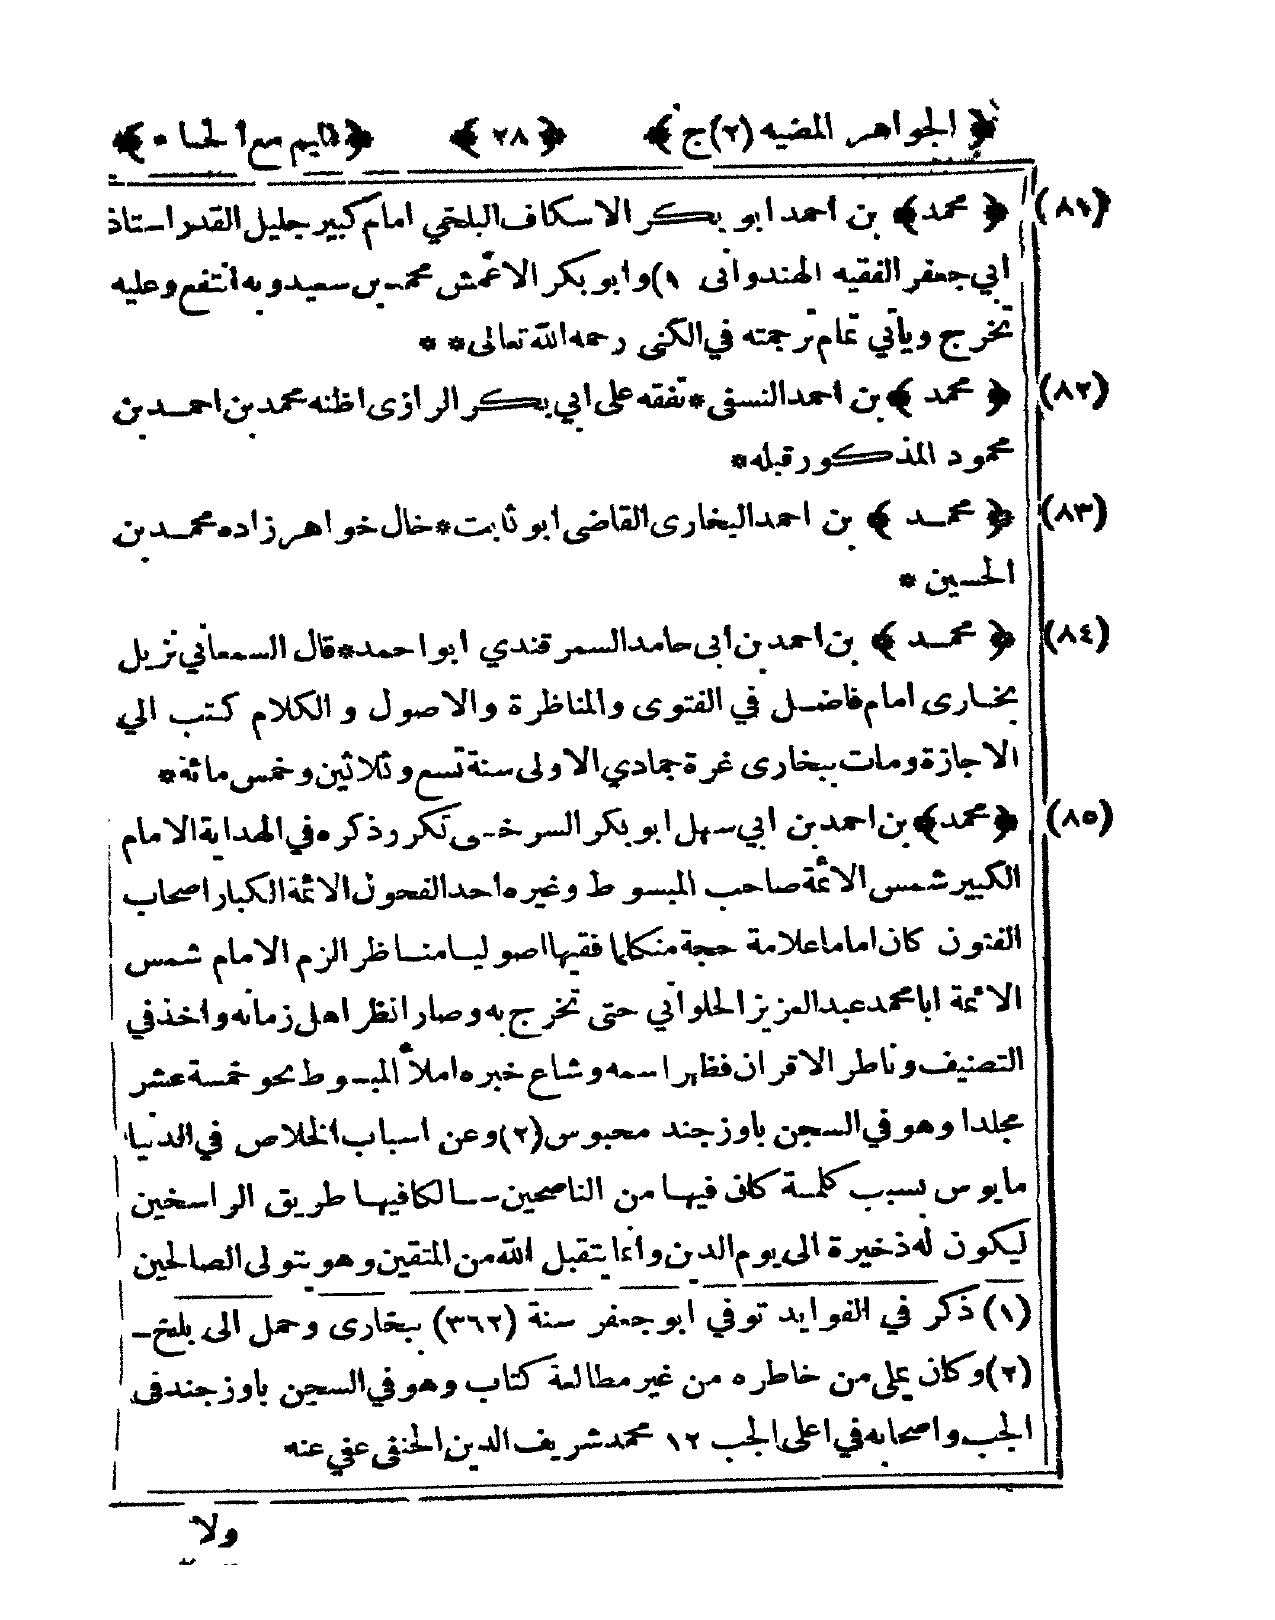 ﴿الجواهر المضيه (٢) ج﴾ ﴿٢٨﴾ ﴿الميم مع الحاء *﴾
(٨١) ﴿محمد﴾ بن احمد ابو بكر الاسكاف البلخي امام كبير جليل القدر استاذ
ابي جعفر الفقيه الهندوانى (١) وابو بكر الاعمش محمد بن سعيد وبه انتفع وعليه
تخرج ويأتي تمام ترجمته في الكنى رحمه الله تعالى * *
(٨٢) ﴿محمد﴾ بن احمد النسفى * تفقه على ابي بكر الرازى اظنه محمد بن احمد بن
محمود المذكور قبله *
(٨٣) ﴿محمد﴾ بن احمد البخارى القاضى ابو ثابت * خال خواهر زاده محمد بن
الحسين *
(٨٤) ﴿محمد﴾ بن احمد بن ابى حامد السمرقندي ابو احمد * قال السمعاني نزيل
بخارى امام فاضل في الفتوى والمناظرة والاصول و الكلام كتب الي
الاجازة ومات ببخارى غرة جمادي الاولى سنة تسع وثلاثين وخمس مائة *
(٨٥) ﴿محمد﴾ بن احمد بن ابي سهل ابو بكر السرخسى تكرر ذكره في الهداية الامام
الكبير شمس الائمة صاحب المبسوط وغيره احد الفحول الائمة الكبار اصحاب
الفنون كان اماما علامة حجة متكلما فقيها اصوليا مناظر الزم الامام شمس
الائمة ابا محمد عبد العزيز الحلواني حتى تخرج به وصار انظر اهل زمانه واخذ في
التصنيف وناظر الاقران فظهر اسمه وشاع خبره املأ المبسوط نحو خمسة عشر
مجلدا وهو في السجن باوزجند محبوس (٢) وعن اسباب الخلاص في الدنيا
مايوس بسبب كلمة كان فيها من الناصحين سالكا فيها طريق الراسخين
ليكون له ذخيرة الى يوم الدين وانما يتقبل الله من المتقين وهو يتولى الصالحين
(١) ذكر في الفوايد توفي ابو جعفر سنة (٣٦٢) ببخارى وحمل الى بلخ -
(٢) وكان يملى من خاطره من غير مطالعة كتاب وهو في السجن باوزجند فى
الجب واصحابه في اعلى الجب ١٢ محمد شريف الدين الحنفى عفي عنه
ولا